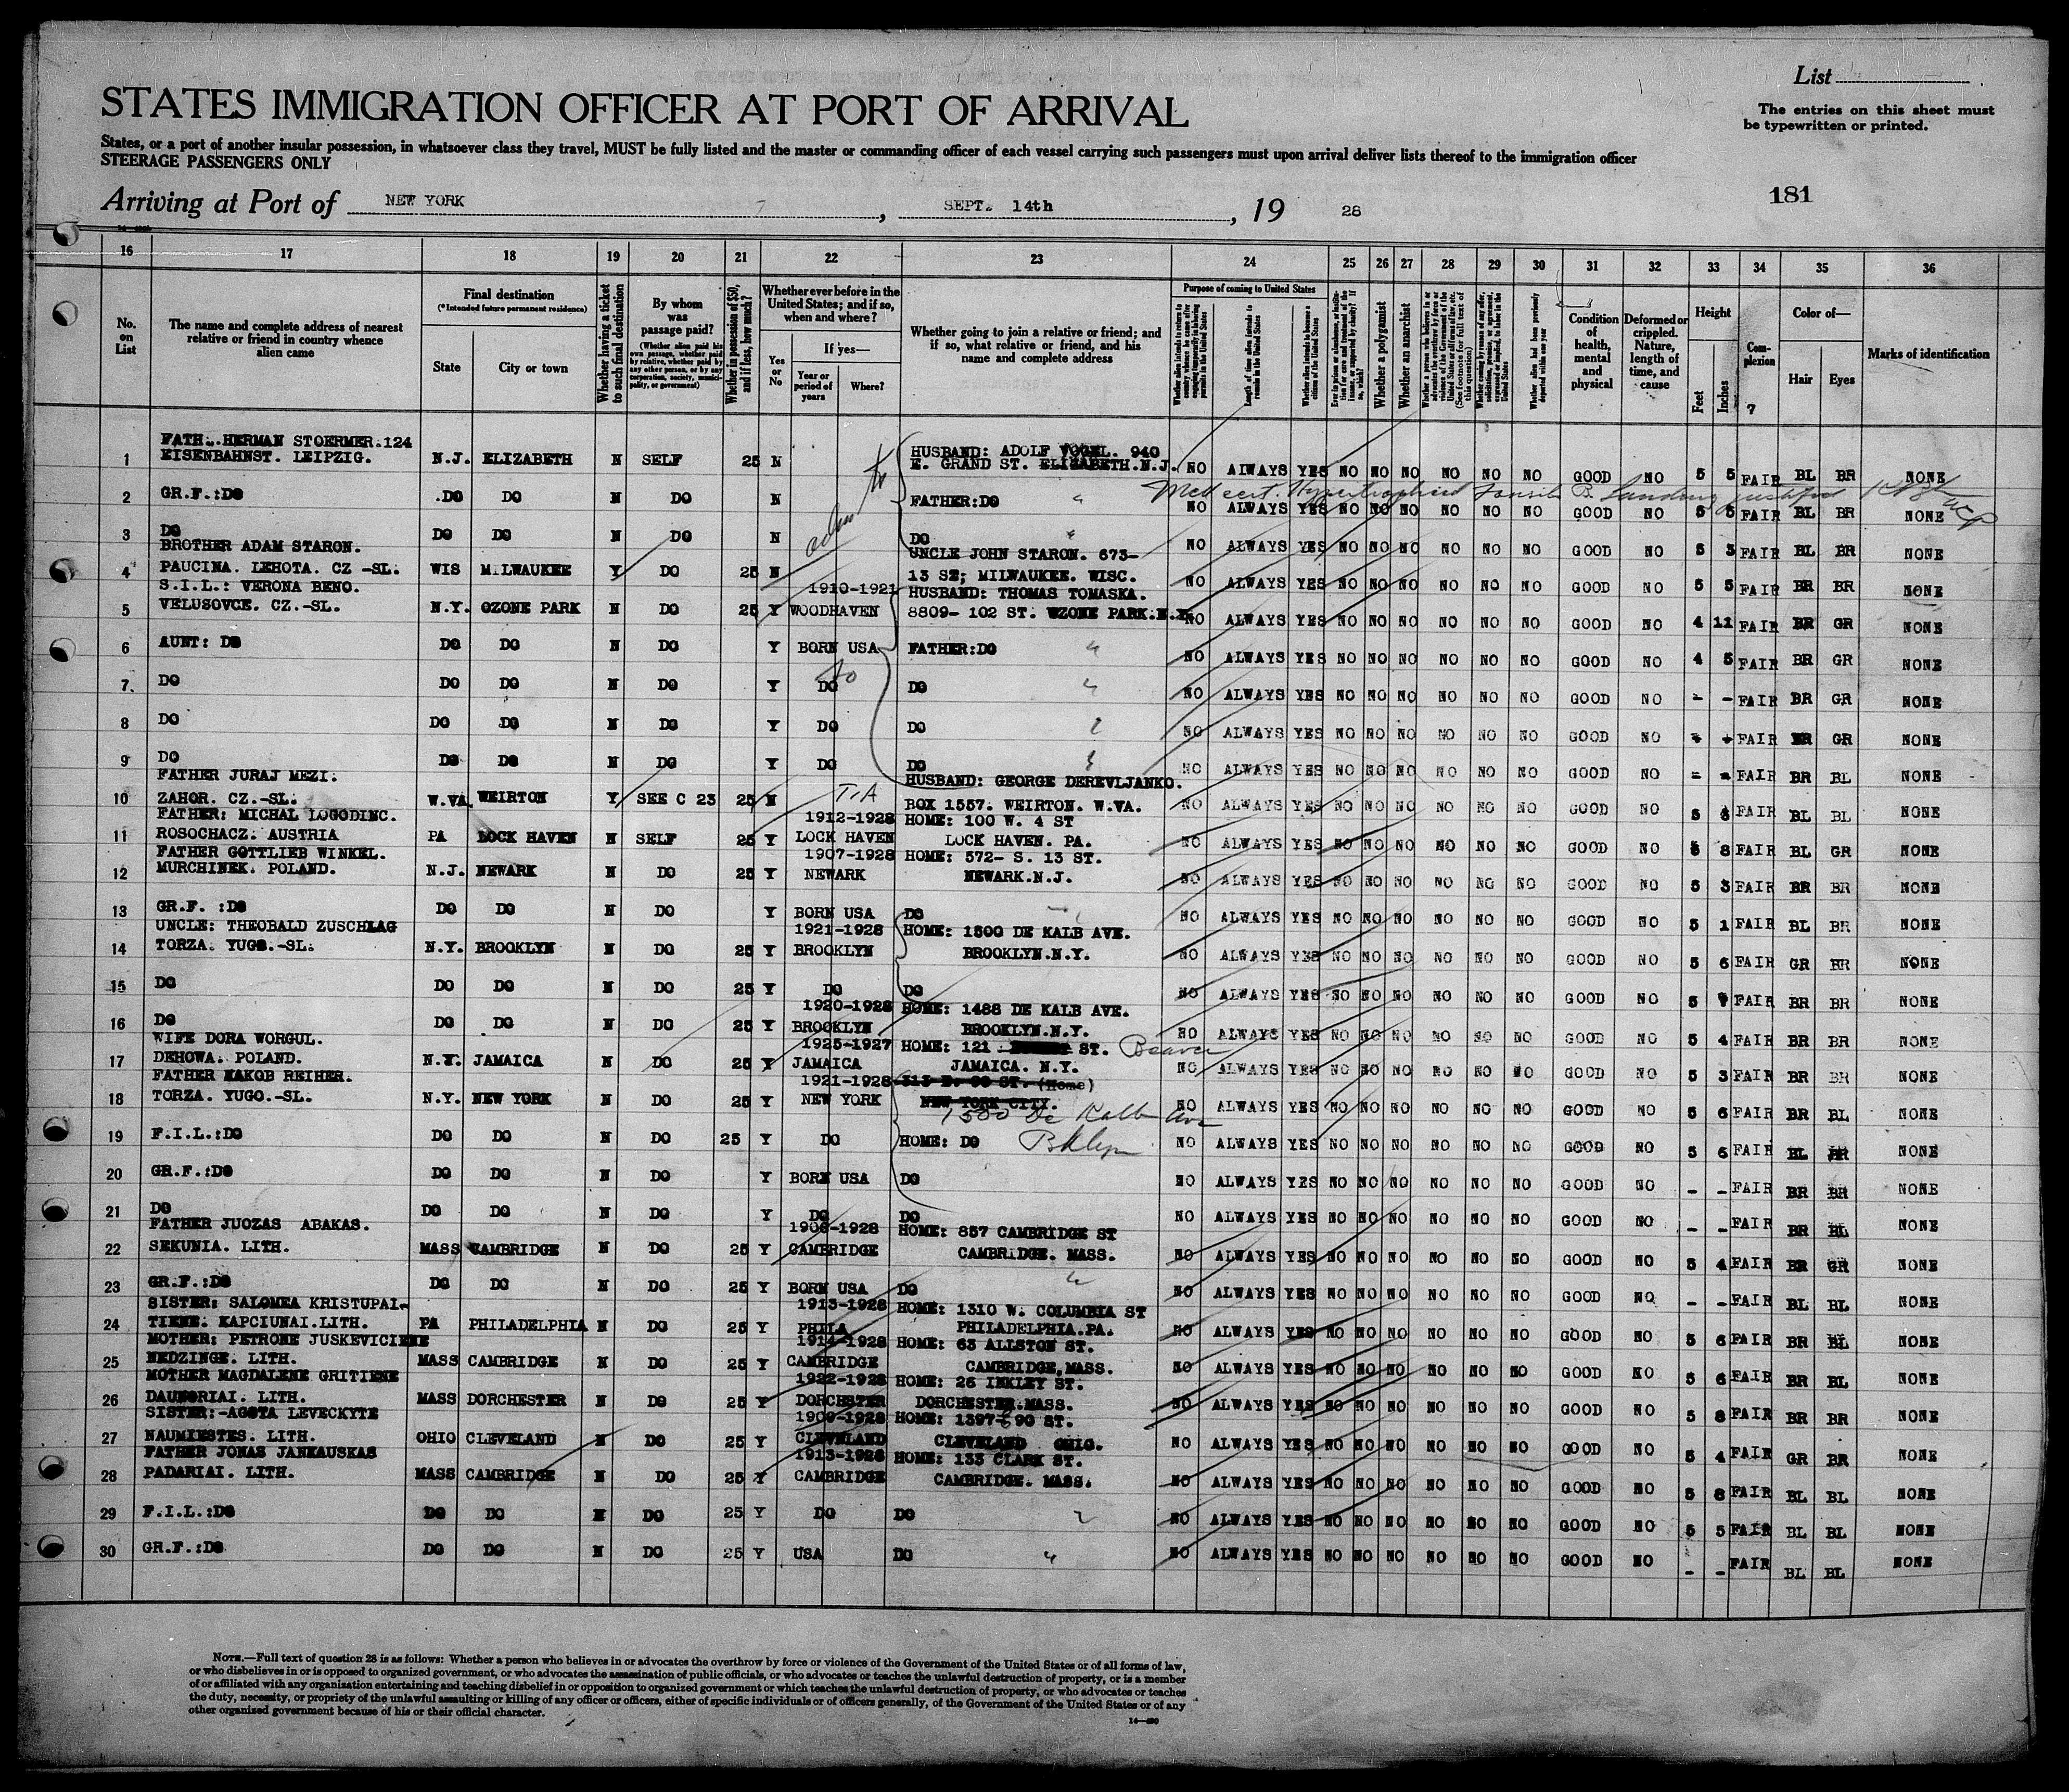 List
STATES IMMIGRATION OFFICER AT PORT OF ARRIVAL
The entries on this sheet must
be typewritten or printed.
States, or a port of another insular possession, in whatsoever class they travel, MUST be fully listed and the master or commanding officer of each vessel carrying such passengers must upon arrival deliver lists thereof to the immigration officer
STEERAGE PASSENGERS ONLY
Arriving at Port of NEW YORK, SEPT. 14th, 19 28
181
16 17 18 19 20 21 22 23 24 25 26 27 28 29 30 31 32 33 34 35 36
No. on List
The name and complete address of nearest relative or friend in country whence alien came
Final destination
(*Intended future permanent residence)
State
City or town
Whether having a ticket to such final destination
By whom was passage paid?
(Whether alien paid his own passage, whether paid by relative, whether paid by any other person, or by any corporation, society, municipality, or government)
Whether in possession of $50, and if less, how much?
Whether ever before in the United States; and if so, when and where?
Yes or No
If yes—
Year or period of years
Where?
Whether going to join a relative or friend; and if so, what relative or friend, and his name and complete address
Purpose of coming to United States
Length of time alien intends to remain in the United States
Whether alien intends to become a citizen of the United States
Whether a polygamist
Whether an anarchist
Condition of health, mental and physical
Deformed or crippled. Nature, length of time, and cause
Height
Feet
Inches
Complexion
Color of—
Hair
Eyes
Marks of identification
7
FATH..HERMAN STOERMER.124
HUSBAND: ADOLF VOGEL. 940
1 EISENBAHNST. LEIPZIG. N.J. ELIZABETH N SELF 25 N E. GRAND ST. ELIZABETH.N.J. NO ALWAYS YES NO NO NO NO NO NO GOOD NO 5 5 FAIR BL BR NONE
Med cert. Hypertrophied Tonsils B. Landing justified
2 GR.F.:DO .DO DO N DO N FATHER:DO NO ALWAYS YES NO NO NO NO NO NO GOOD NO 5 5 FAIR BL BR NONE
3 DO DO DO N DO N DO NO ALWAYS YES NO NO NO NO NO NO GOOD NO 5 3 FAIR BL BR NONE
BROTHER ADAM STARON. UNCLE JOHN STARON. 673-
4 PAUCINA. LEHOTA. CZ -SL. WIS MILWAUKEE Y DO 25 N 13 ST; MILWAUKEE. WISC. NO ALWAYS YES NO NO NO NO NO NO GOOD NO 5 5 FAIR BR BR NONE
S.I.L.: VERONA BENO. 1910-1921 HUSBAND: THOMAS TOMASKA.
5 VELUSOVCE. CZ.-SL. N.Y. OZONE PARK N DO 25 Y WOODHAVEN 8809- 102 ST. OZONE PARK.N.Y. NO ALWAYS YES NO NO NO NO NO NO GOOD NO 4 11 FAIR BR GR NONE
6 AUNT: DO DO DO N DO Y BORN USA FATHER:DO NO ALWAYS YES NO NO NO NO NO NO GOOD NO 4 5 FAIR BR GR NONE
7. DO DO DO N DO Y DO DO NO ALWAYS YES NO NO NO NO NO NO GOOD NO - - FAIR BR GR NONE
8 DO DO DO N DO Y DO DO NO ALWAYS YES NO NO NO NO NO NO GOOD NO FAIR BR GR NONE
9 DO DO DO N DO Y DO DO NO ALWAYS YES NO NO NO NO NO NO GOOD NO - - FAIR BR BL NONE
FATHER JURAJ MEZI. HUSBAND: GEORGE DEREVLJANKO.
10 ZAHOR. CZ.-SL. W.VA. WEIRTON Y SEE C 23 25 N BOX 1557. WEIRTON. W.VA. NO ALWAYS YES NO NO NO NO NO NO GOOD NO 5 FAIR BL BL NONE
FATHER: MICHAL LOGODINC. 1912-1928 HOME: 100 W. 4 ST
11 ROSOCHACZ. AUSTRIA PA LOCK HAVEN N SELF 25 Y LOCK HAVEN LOCK HAVEN. PA. NO ALWAYS YES NO NO NO NO NO NO GOOD NO 5 8 FAIR BL GR NONE
FATHER GOTTLIEB WINKEL. 1907-1928 HOME: 572- S. 13 ST.
12 MURCHINEK. POLAND. N.J. NEWARK N DO 25 Y NEWARK NEWARK.N.J. NO ALWAYS YES NO NO NO NO NO NO GOOD NO 5 3 FAIR BR BR NONE
13 GR.F. :DO DO DO N DO Y BORN USA DO NO ALWAYS YES NO NO NO NO NO NO GOOD NO 5 1 FAIR BL BR NONE
UNCLE: THEOBALD ZUSCHLAG 1921-1928 HOME: 1500 DE KALB AVE.
14 TORZA. YUGO.-SL. N.Y. BROOKLYN N DO 25 Y BROOKLYN BROOKLYN.N.Y. NO ALWAYS YES NO NO NO NO NO NO GOOD NO 5 6 FAIR GR BR NONE
15 DO DO DO N DO 25 Y DO DO NO ALWAYS YES NO NO NO NO NO NO GOOD NO 5 FAIR BR BR NONE
1920-1928 HOME: 1488 DE KALB AVE.
16 DO DO DO N DO 25 Y BROOKLYN BROOKLYN.N.Y. NO ALWAYS YES NO NO NO NO NO NO GOOD NO 5 4 FAIR BR BR NONE
WIFE DORA WORGUL. 1925-1927 HOME: 121 ST. Beaver
17 DEHOWA. POLAND. N.Y. JAMAICA N DO 25 Y JAMAICA JAMAICA. N.Y. NO ALWAYS YES NO NO NO NO NO NO GOOD NO 5 3 FAIR BR BR NONE
FATHER JAKOB REIHER. 1921-1928 313 ST. (Home)
18 TORZA. YUGO.-SL. N.Y. NEW YORK N DO 25 Y NEW YORK NEW YORK CITY. NO ALWAYS YES NO NO NO NO NO NO GOOD NO 5 6 FAIR BR BL NONE
1500 De Kalb Ave
19 F.I.L.:DO DO DO N DO 25 Y DO HOME: DO Bklyn NO ALWAYS YES NO NO NO NO NO NO GOOD NO 5 6 FAIR BL BR NONE
20 GR.F.:DO DO DO N DO Y BORN USA DO NO ALWAYS YES NO NO NO NO NO NO GOOD NO - - FAIR BR BR NONE
21 DO DO DO N DO Y DO DO NO ALWAYS YES NO NO NO NO NO NO GOOD NO - - FAIR BR BL NONE
FATHER JUOZAS ABAKAS. 1908-1928 HOME: 857 CAMBRIDGE ST
22 SEKUNIA. LITH. MASS CAMBRIDGE N DO 25 Y CAMBRIDGE CAMBRIDGE. MASS. NO ALWAYS YES NO NO NO NO NO NO GOOD NO 5 4 FAIR BR GR NONE
23 GR.F.:DO DO DO N DO 25 Y BORN USA DO NO ALWAYS YES NO NO NO NO NO NO GOOD NO - - FAIR BL BL NONE
SISTER: SALOMEA KRISTUPAI- 1913-1928 HOME: 1310 W. COLUMBIA ST
24 TIENE. KAPCIUNAI.LITH. PA PHILADELPHIA N DO 25 Y PHILA PHILADELPHIA.PA. NO ALWAYS YES NO NO NO NO NO NO GOOD NO 5 6 FAIR BR BL NONE
MOTHER: PETRONE JUSKEVICIENE 1914-1928 HOME: 63 ALLSTON ST.
25 NEDZINGE. LITH. MASS CAMBRIDGE N DO 25 Y CAMBRIDGE CAMBRIDGE,MASS. NO ALWAYS YES NO NO NO NO NO NO GOOD NO 5 6 FAIR BR BL NONE
MOTHER MAGDALENE GRITIENE 1922-1928 HOME: 26 INKLEY ST.
26 DAUNORIAI. LITH. MASS DORCHESTER N DO 25 Y DORCHESTER DORCHESTER.MASS. NO ALWAYS YES NO NO NO NO NO NO GOOD NO 5 8 FAIR BR BR NONE
SISTER:-AGOTA LEVECKYTE 1909-1928 HOME: 1397 E 90 ST.
27 NAUMIESTES. LITH. OHIO CLEVELAND N DO 25 Y CLEVELAND CLEVELAND OHIO. NO ALWAYS YES NO NO NO NO NO NO GOOD NO 5 4 FAIR GR BR NONE
FATHER JONAS JANKAUSKAS 1913-1928 HOME: 133 CLARK ST.
28 PADARIAI. LITH. MASS CAMBRIDGE N DO 25 Y CAMBRIDGE CAMBRIDGE. MASS. NO ALWAYS YES NO NO NO NO NO NO GOOD NO 5 8 FAIR BL BL NONE
29 F.I.L.:DO DO DO N DO 25 Y DO DO NO ALWAYS YES NO NO NO NO NO NO GOOD NO 5 5 FAIR BL BL NONE
30 GR.F.:DO DO DO N DO 25 Y USA DO NO ALWAYS YES NO NO NO NO NO NO GOOD NO - - FAIR BL BL NONE
NOTE.—Full text of question 28 is as follows: Whether a person who believes in or advocates the overthrow by force or violence of the Government of the United States or of all forms of law,
or who disbelieves in or is opposed to organized government, or who advocates the assassination of public officials, or who advocates or teaches the unlawful destruction of property, or is a member
of or affiliated with any organization entertaining and teaching disbelief in or opposition to organized government or which teaches the unlawful destruction of property, or who advocates or teaches
the duty, necessity, or propriety of the unlawful assaulting or killing of any officer or officers, either of specific individuals or of officers generally, of the Government of the United States or of any
other organized government because of his or their official character.